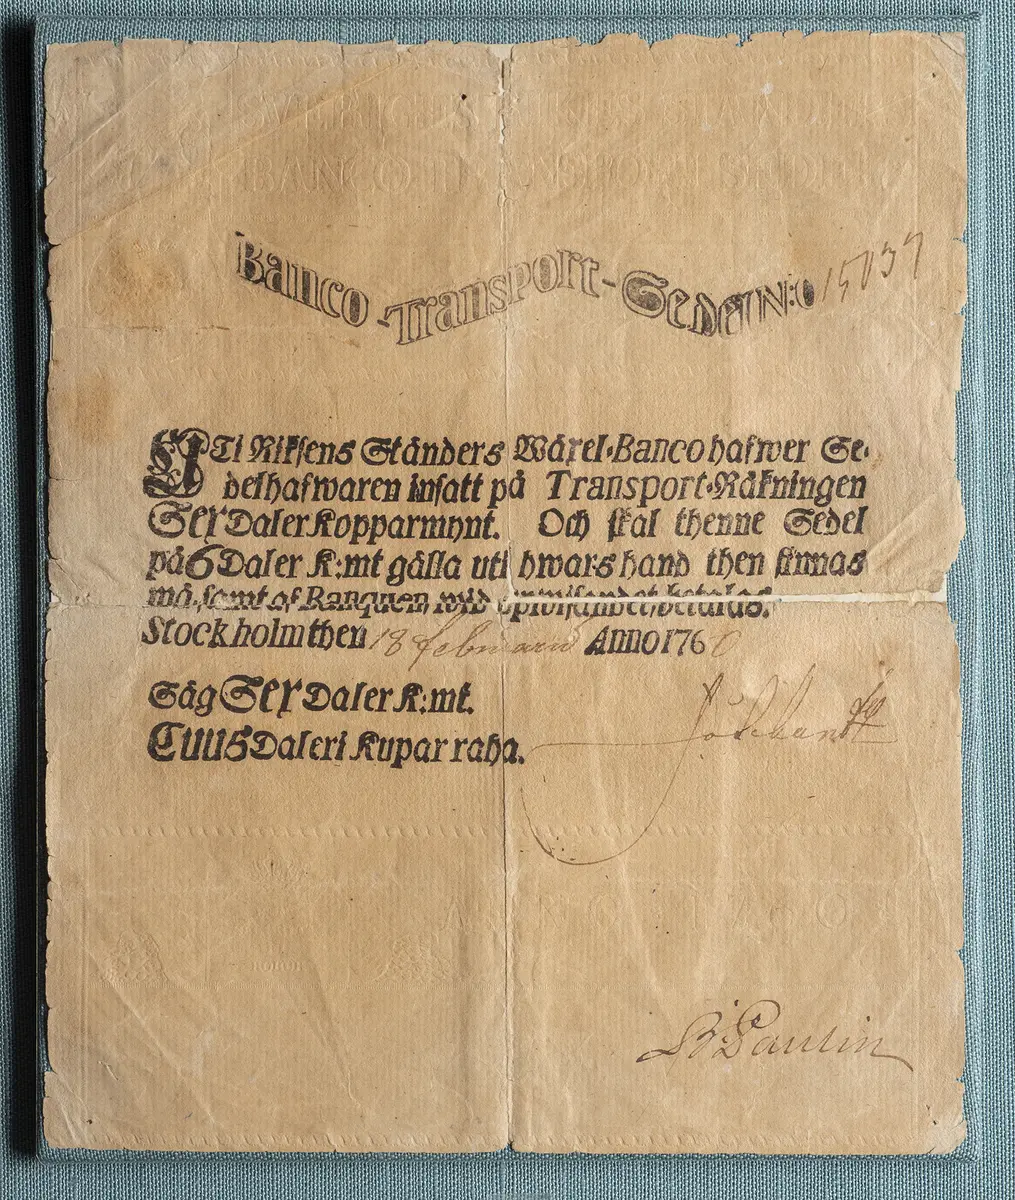 Banco-Transport-Sedel N:o 15037
UTi Riksens Ständers Wäxel-Banco hafwer Se-
delhafwaren insatt på Transport-Räkningen
Sex Daler Kopparmynt. Och skal thenne Sedel
på 6 Daler K:mt gälla uti hwars hand then finnas
må, samt af Banquen wid upwisandet, betalas.
Stockholm then 18 februarii Anno 1760
Säg Sex Daler K:mt.
Cuus Daleri Kuparraha.
B Paulin